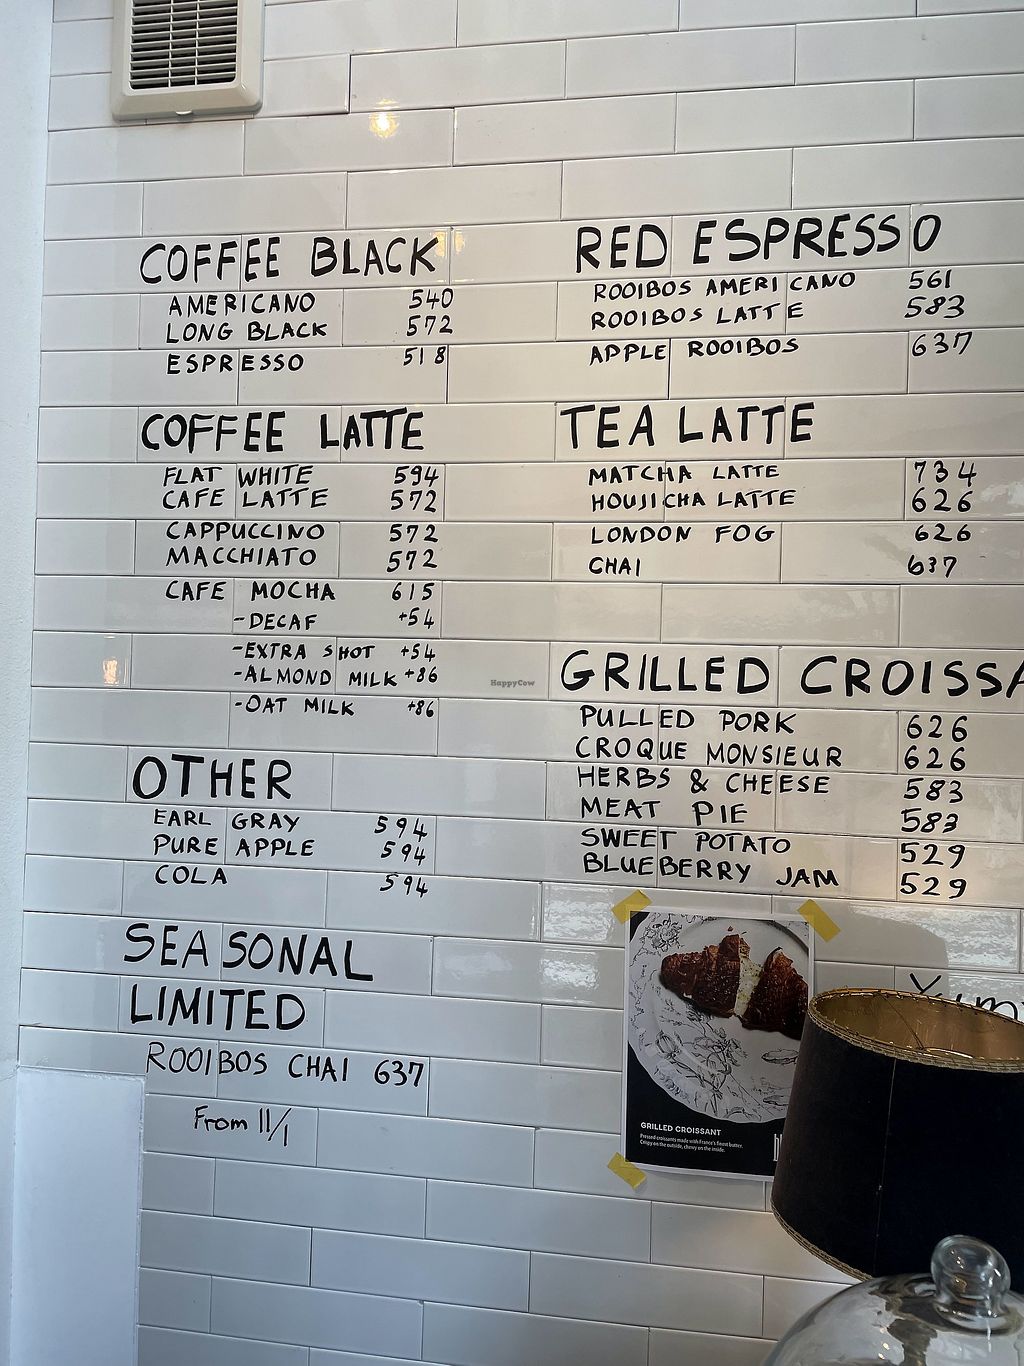 COFFEE BLACK
AMERICANO 540
LONG BLACK 572
ESPRESSO 518
COFFEE LATTE
FLAT WHITE 594
CAFE LATTE 572
CAPPUCCINO 572
MACCHIATO 572
CAFE MOCHA 615
-DECAF +54
-EXTRA SHOT +54
-ALMOND MILK +86
-OAT MILK +86
OTHER
EARL GRAY 594
PURE APPLE 594
COLA 594
SEASONAL
LIMITED
ROOIBOS CHAI 637
From 11/1
RED ESPRESSO
ROOIBOS AMERICANO 561
ROOIBOS LATTE 583
APPLE ROOIBOS 637
TEA LATTE
MATCHA LATTE 734
HOUJICHA LATTE 626
LONDON FOG 626
CHAI 637
HappyCow
GRILLED CROISSA
PULLED PORK 626
CROQUE MONSIEUR 626
HERBS & CHEESE 583
MEAT PIE 583
SWEET POTATO 529
BLUEBERRY JAM 529
GRILLED CROISSANT
Pressed croissants made with France's finest butter.
Crispy on the outside, chewy on the inside.